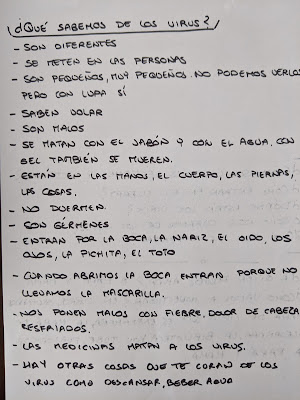 ¿QUÉ SABEMOS DE LOS VIRUS?
- SON DIFERENTES
- SE METEN EN LAS PERSONAS
- SON PEQUEÑOS, MUY PEQUEÑOS. NO PODEMOS VERLOS
PERO CON LUPA SÍ
- SABEN VOLAR
- SON MALOS
- SE MATAN CON EL JABÓN Y CON EL AGUA. CON
GEL TAMBIÉN SE MUEREN.
- ESTÁN EN LAS MANOS, EL CUERPO, LAS PIERNAS,
LAS COSAS.
- NO DUERMEN.
- SON GÉRMENES
- ENTRAN POR LA BOCA, LA NARIZ, EL OIDO, LOS
OJOS, LA PICHITA, EL TOTO
- CUANDO ABRIMOS LA BOCA ENTRAN PORQUE NO
LLEVAMOS LA MASCARILLA.
- NOS PONEN MALOS CON FIEBRE, DOLOR DE CABEZA
RESFRIADOS.
- LAS MEDICINAS MATAN A LOS VIRUS.
- HAY OTRAS COSAS QUE TE CURAN DE LOS
VIRUS COMO DESCANSAR, BEBER AGUA